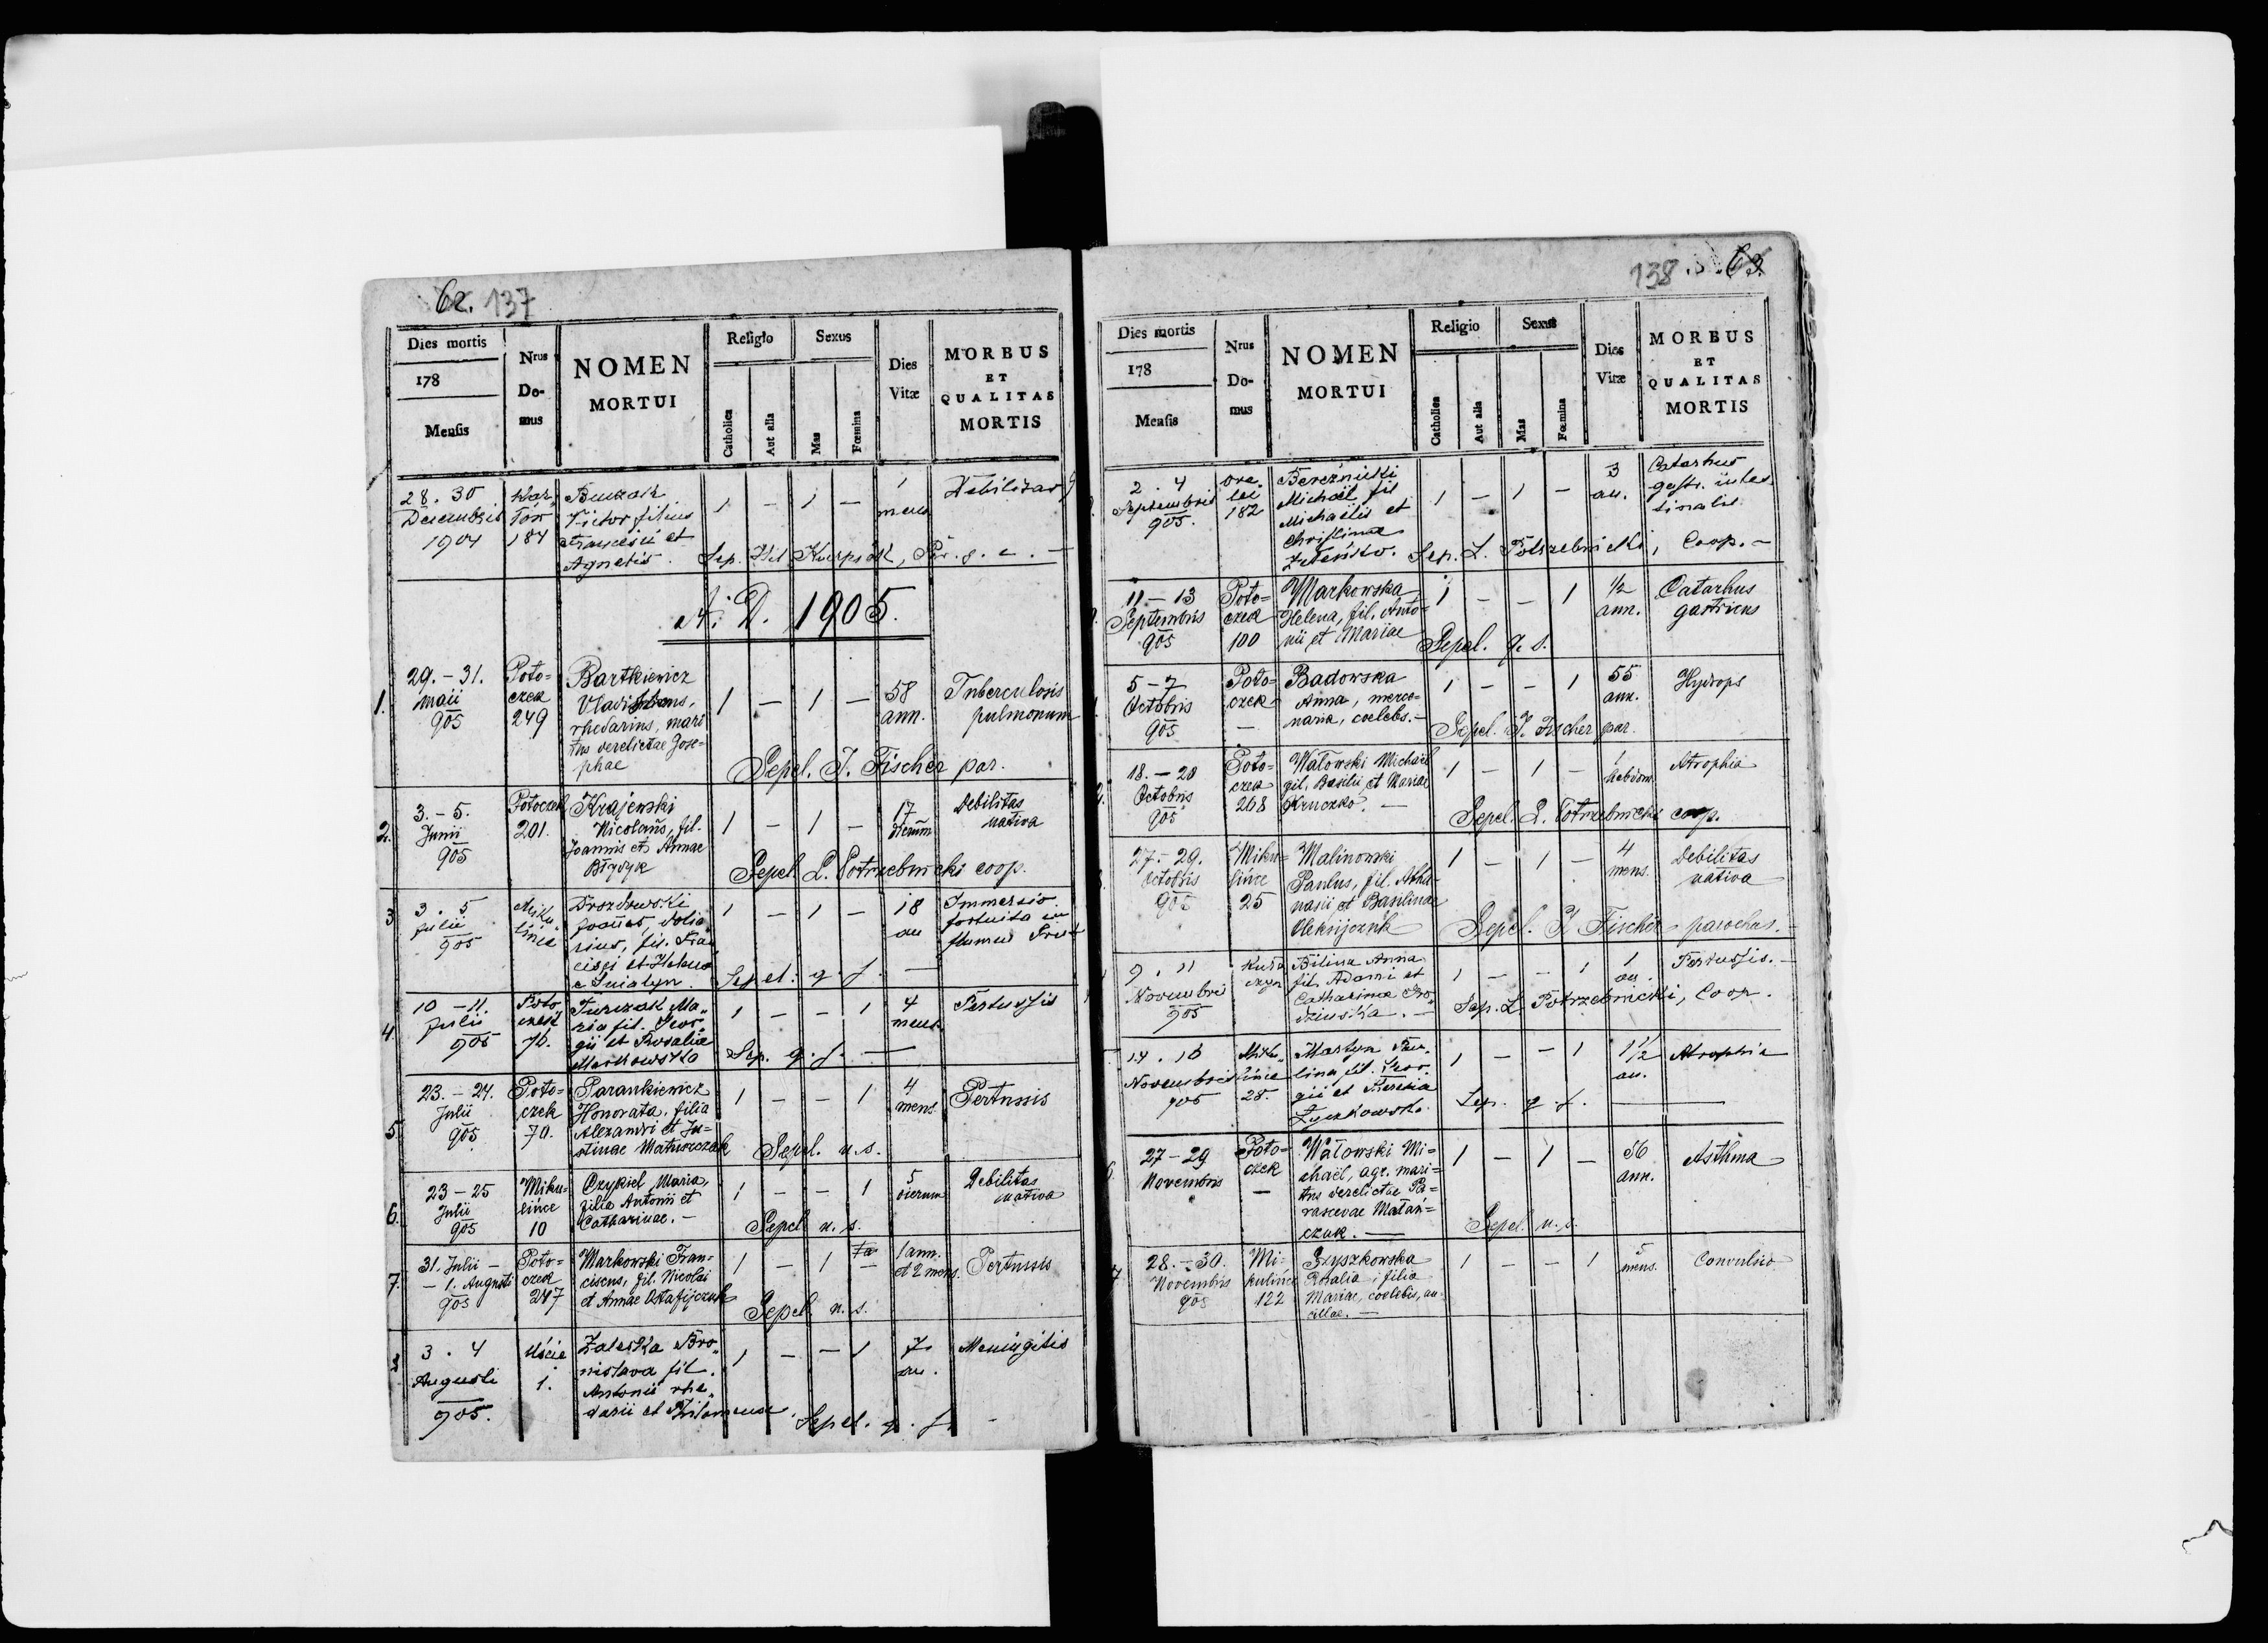 62. 137
Dies mortis
178
Mensis
Nrus Domus
NOMEN MORTUI
Religio
Catholica
Aut alia
Sexus
Mas
Fœmina
Dies Vitæ
MORBUS ET QUALITAS MORTIS
28. 30 Decembris 1904
184
Victor filius
et
Agnetis
1 - 1 -
1 mens
Debilitas
Sep.
A. D. 1905.
1.
29. - 31. Maii 905
Potoczek 249
Bartkiewicz
rhedarius, mari
tus derelictae Jose=
phae
1 - 1 -
58 ann.
Tuberculosis pulmonum
Sepel. J. Fischer par.
2.
3. - 5. Junii 905
Potoczek 201.
Krajewski
Nicolaus, fil.
Joannis et Annae
1 - 1 -
17 dierum
Debilitas nativa
Sepel. L. Potrzebnicki coop.
3
3. 5 Julii 905
Mikulince
Drozdowski
1 - 1 -
18 an
Immersio fortuita in flumen Prut
Sepel. q. s. -
4.
10 - 11. Julii 905
Potoczek 76.
Turczak Ma„
ria fil. Geor„
gii et Rosalia
Markowska
1 - - 1
4 mens.
Pertussis
Sep. q. s. -
5.
23. - 24. Julii 905
Potoczek 70.
Parankiewicz
Honorata, filia
Alexandri et Ju=
stinae Matusczak
1 - - 1
4 mens.
Pertussis
Sepel. u. s.
6.
23 - 25 Julii 905
Mikulince 10
Czykiel Maria,
filia Antonii et
Catharinae. -
1 - - 1
5 dierum
Debilitas nativa
Sepel. u. s.
7.
31. Julii - - 1. Augusti 905
Potoczek 247
Markowski Fran=
ciscus, fil. Nicolai
et Annae Ostafijczuk
1 - 1 -
1 ann. et 2 mens.
Pertussis
Sepel. u. s.
3. 4 Augusti 905.
Uście 1.
Zaleska Bro„
nislava fil.
Antonii rhe„
darii et Philomenae
1 - - 1
7. an.
Meningitis
Sepel. q. s. -
138. 63.
Dies mortis
178
Mensis
Nrus Domus
NOMEN MORTUI
Religio
Catholica
Aut alia
Sexus
Mas
Fœmina
Dies Vitæ
MORBUS ET QUALITAS MORTIS
2. 4 Septembris 905.
182
Bereźnicki
Michaël fil
Michaëlis et
Christinae
1 - 1 -
3 an.
Catarhus gastr. intes tinalis
Sep. L. Potrzebnicki, Coop. -
11 - 13 Septembris 905
Potoczek 100
Markowska
Helena, fil. Anto=
nii et Mariae
1 - - 1
1/2 ann.
Catarhus gastricus
Sepel. q. s.
5 - 7 Octobris 905
Potoczek -
Badowska
Anna, merce=
naria, coelebs. -
1 - - 1
55 ann.
Hydrops
Sepel. J. Fischer par.
18. - 20 Octobris 905
Potoczek 268
Watowski Michaël
fil. Basilii et Mariae
Kruczko. -
1 - 1 -
1 hebdom.
Atrophia
Sepel. L. Potrzebnicki coop.
27. - 29. Octobris 905
Mikulince 25
Malinowski
Paulus, fil. Atha-
nasii et Basilinae
Oleksijczuk
1 - 1 -
4 mens.
Debilitas nativa
Sepel. J. Fischer parochus. -
9. 11 Novembris 905
Bilina Anna
fil. Adami et
Catharinae
1 - - 1
1 an.
Pertussis. -
Sep. L Potrzebnicki, Coop.
14. 16 Novembris 905
Mikulince 28.
Martyn Pau„
lina fil. Geor„
gii et Theresia
1 - - 1
1 1/2 an.
Atrophia
Sep. q. s.
27 - 29 Novembris
Potoczek -
Watowski Mi=
chaël, agr. mari=
tus derelictae Pa=
rascevae Matań=
czuk. -
1 - 1 -
56 ann.
Asthma
Sepel. u. s.
28. - 30. Novembris 905
Mikulince 122
Szyszkowska
Rosalia, filia
Mariae, coelebis, an-
cillae. -
1 - - 1
5 mens.
Convulsio